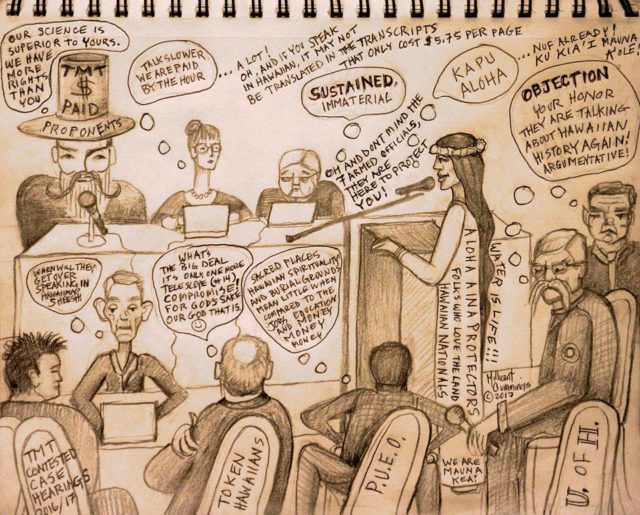 OUR SCIENCE IS
SUPERIOR TO YOURS.
WE HAVE
MORE
RIGHTS
THAN
YOU
TMT
$
PAID
PROPONENTS
TALK SLOWER
WE ARE PAID
BY THE HOUR
... A LOT!
OH, AND IF YOU SPEAK
IN HAWAIIAN, IT MAY NOT
BE TRANSLATED IN THE TRANSCRIPTS
THAT ONLY COST $5.75 PER PAGE
SUSTAINED,
IMMATERIAL
OH AND DON'T MIND THE
7 ARMED OFFICIALS,
THEY ARE
HERE TO PROTECT
YOU!
KAPU
ALOHA
... NUF ALREADY!
KU KIA'I MAUNA
K'OLE!
OBJECTION
YOUR HONOR
THEY ARE TALKING
ABOUT HAWAIIAN
HISTORY AGAIN!
ARGUMENTATIVE!
WHEN WILL THEY
GET OVER
SPEAKING IN
HAWAIIAN?
SHEESH!
WHATS
THE BIG DEAL
IT'S ONLY ONE MORE
TELESCOPE (#14),
COMPROMISE,
FOR GODS SAKE
OUR GOD THAT IS
SACRED PLACES
HAWAIIAN SPIRITUALITY
AND BURIAL GROUNDS
MEAN LITTLE WHEN
COMPARED TO THE
JOBS, EDUCATION
AND MONEY
MONEY
MONEY
WATER IS LIFE!!!
ALOHA AINA PROTECTORS
FOLKS WHO LOVE THE LAND
HAWAIIAN NATIONALS
Millicent
Cummings
© 2017
TMT
CONTESTED
CASE
HEARINGS
2016/17
TOKEN
HAWAIIANS
P.U.E.O.
WE ARE
MAUNA
KEA!
U. OF H.